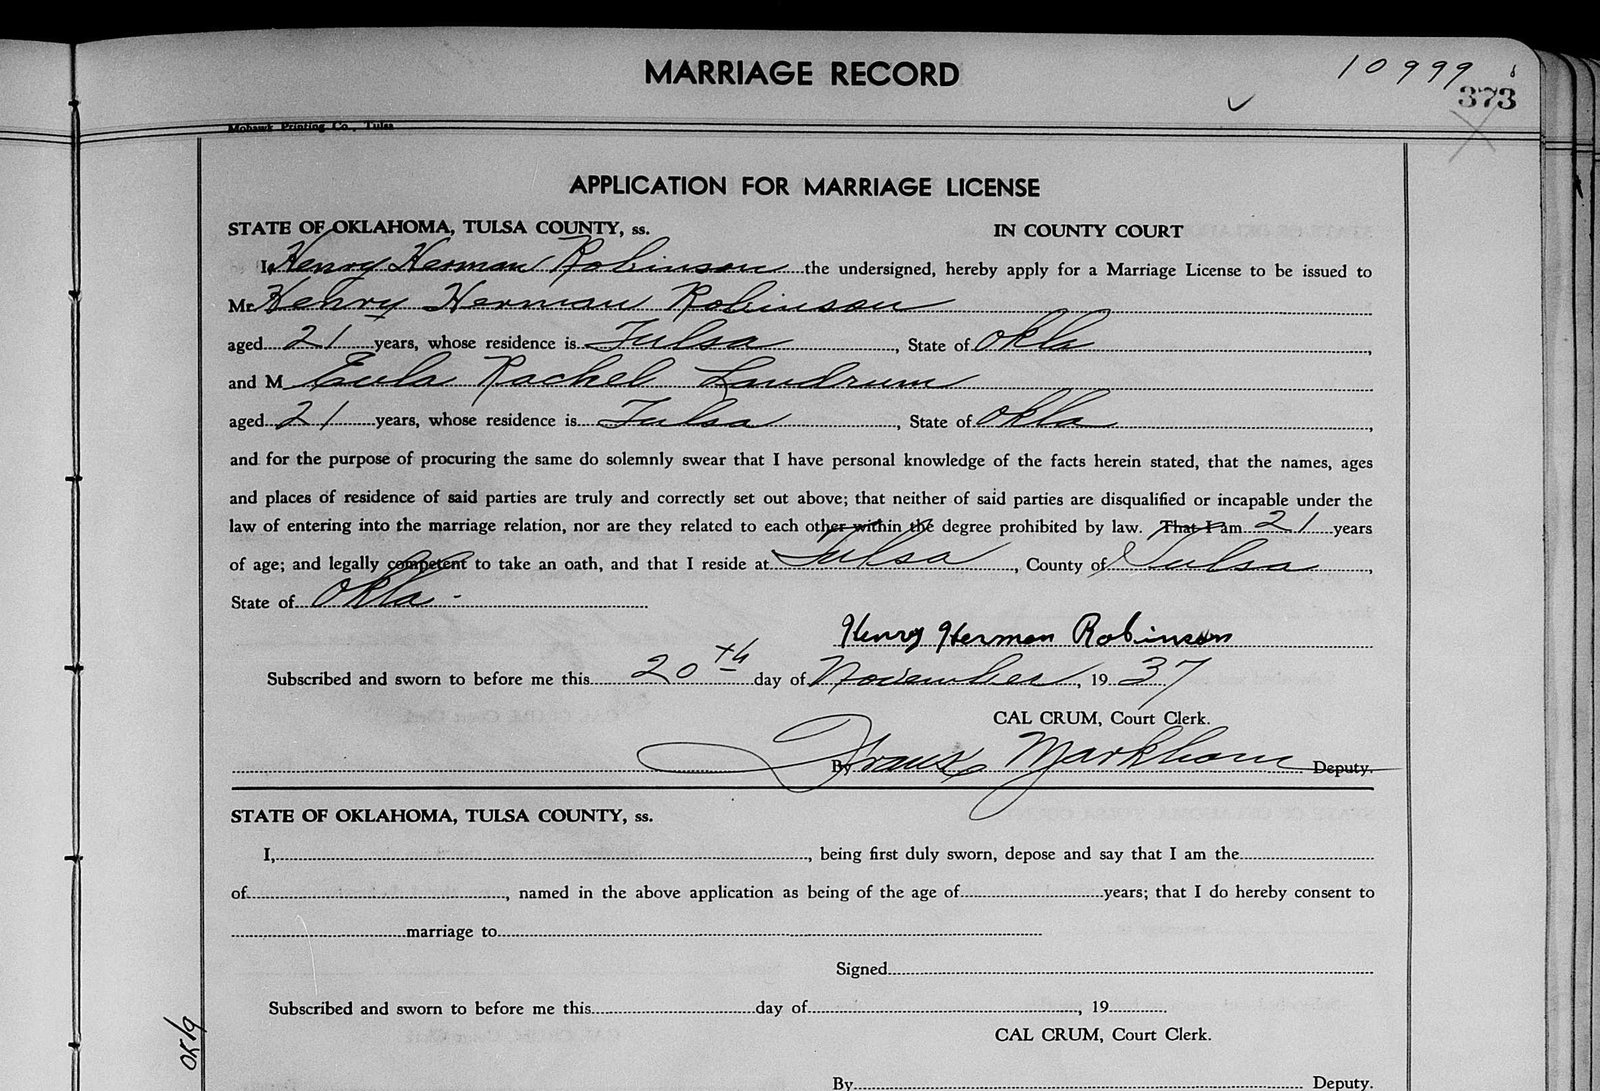 MARRIAGE RECORD
10999
373
Mohawk Printing Co., Tulsa
APPLICATION FOR MARRIAGE LICENSE
STATE OF OKLAHOMA, TULSA COUNTY, ss. IN COUNTY COURT
I, Henry Herman Robinson the undersigned, hereby apply for a Marriage License to be issued to
Mr. Henry Herman Robinson
aged 21 years, whose residence is Tulsa, State of Okla,
and M Eula Rachel Landrum
aged 21 years, whose residence is Tulsa, State of Okla,
and for the purpose of procuring the same do solemnly swear that I have personal knowledge of the facts herein stated, that the names, ages
and places of residence of said parties are truly and correctly set out above; that neither of said parties are disqualified or incapable under the
law of entering into the marriage relation, nor are they related to each other within the degree prohibited by law. That I am 21 years
of age; and legally competent to take an oath, and that I reside at Tulsa, County of Tulsa,
State of Okla.
Henry Herman Robinson
Subscribed and sworn to before me this 20th day of November, 1937
CAL CRUM, Court Clerk.
By Markham Deputy.
STATE OF OKLAHOMA, TULSA COUNTY, ss.
I, , being first duly sworn, depose and say that I am the
of , named in the above application as being of the age of years; that I do hereby consent to
marriage to
Signed
Subscribed and sworn to before me this day of , 19
CAL CRUM, Court Clerk.
By Deputy.